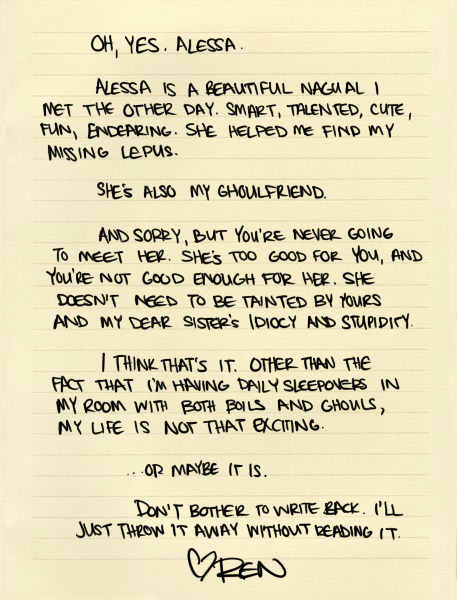 OH, YES. ALESSA.
ALESSA IS A BEAUTIFUL NAGUAL I
MET THE OTHER DAY. SMART, TALENTED, CUTE,
FUN, ENDEARING. SHE HELPED ME FIND MY
MISSING LEPUS.
SHE'S ALSO MY GHOULFRIEND.
AND SORRY, BUT YOU'RE NEVER GOING
TO MEET HER. SHE'S TOO GOOD FOR YOU, AND
YOU'RE NOT GOOD ENOUGH FOR HER. SHE
DOESN'T NEED TO BE TAINTED BY YOURS
AND MY DEAR SISTER'S IDIOCY AND STUPIDITY.
I THINK THAT'S IT. OTHER THAN THE
FACT THAT I'M HAVING DAILY SLEEPOVERS IN
MY ROOM WITH BOTH BOILS AND GHOULS,
MY LIFE IS NOT THAT EXCITING.
...OR MAYBE IT IS.
DON'T BOTHER TO WRITE BACK. I'LL
JUST THROW IT AWAY WITHOUT READING IT.
♡REN